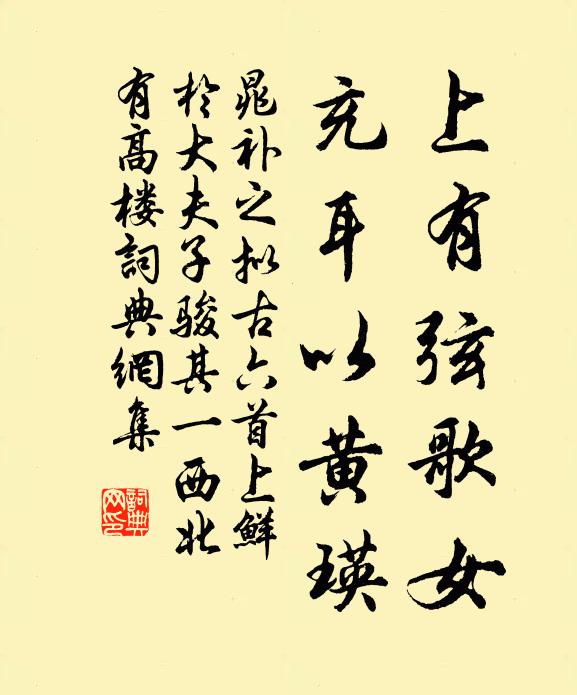 上有弦歌女
充耳以黄瑛
晁补之拟古六首上鲜
於大夫子骏其一西北
有高楼詞典網集
詞典
网印